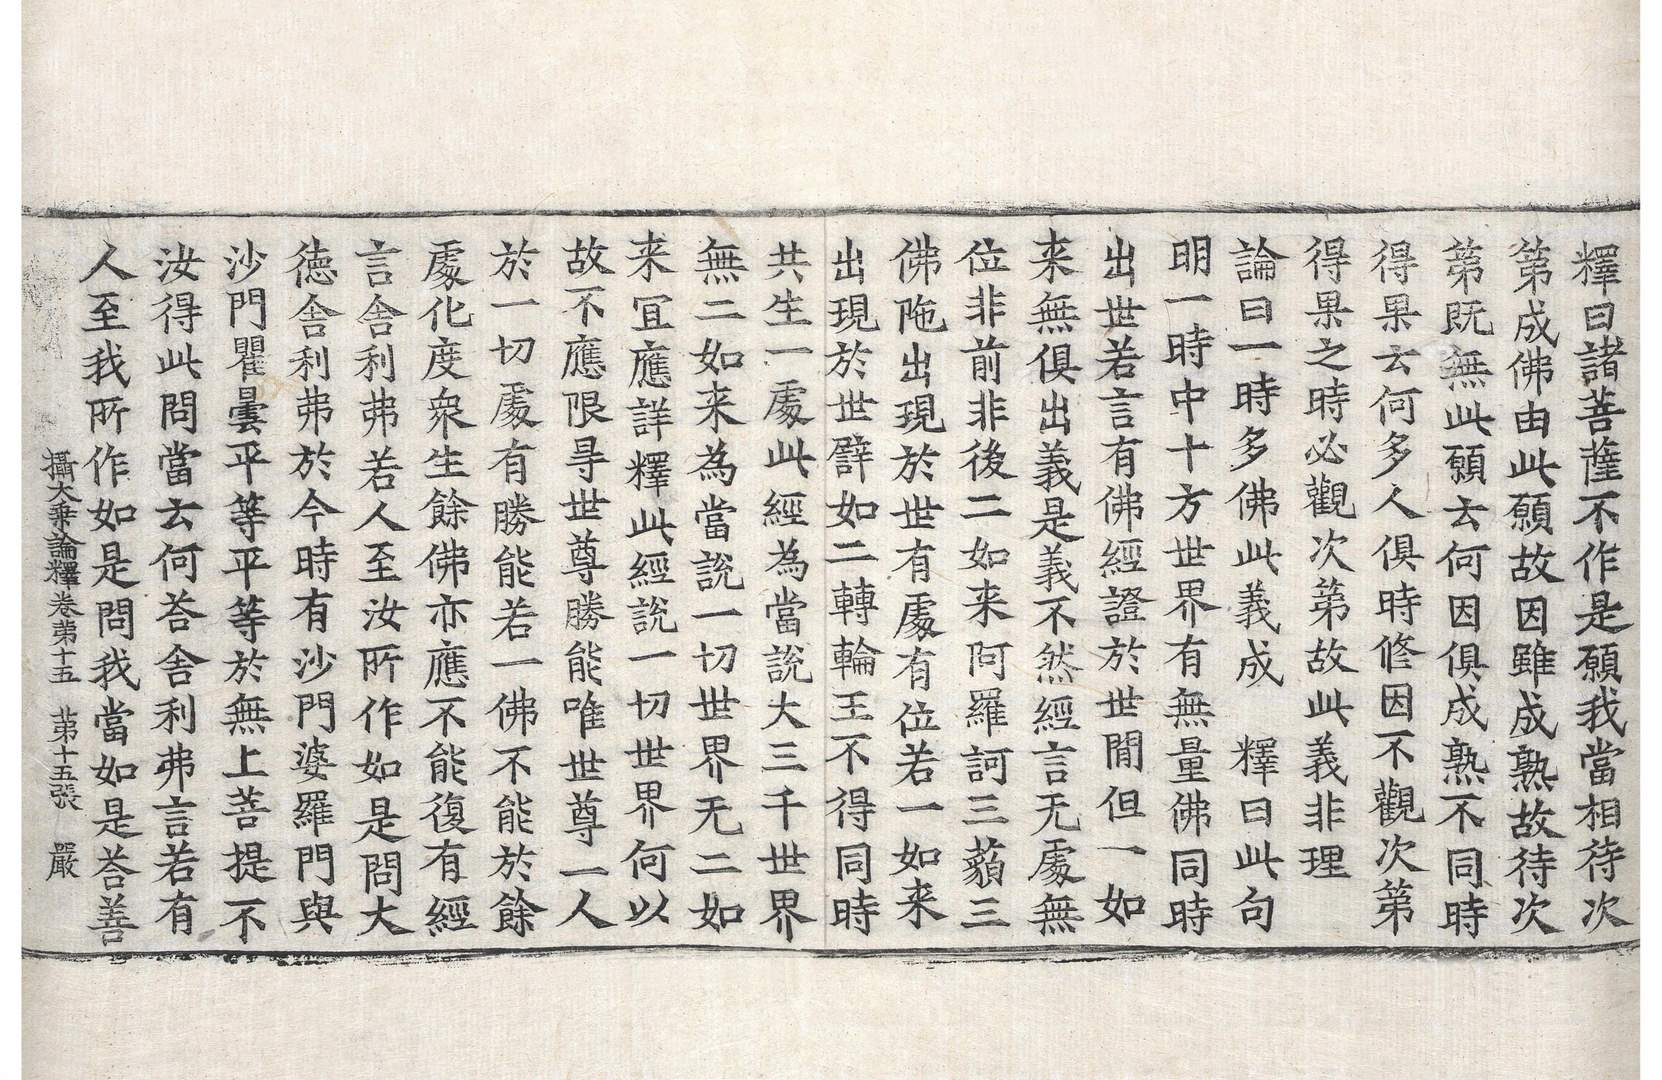 釋曰諸菩薩不作是願我當相待次
第成佛由此願故因雖成熟故待次
第既無此願云何因俱成熟不同時
得果云何多人俱時修因不觀次第
得果之時必觀次第故此義非理
論曰一時多佛此義成　釋曰此句
明一時中十方世界有無量佛同時
出世若言有佛經證於世間但一如
来無俱出義是義不然經言无處無
位非前非後二如来阿羅訶三藐三
佛陁出現於世有處有位若一如来
出現於世譬如二轉輪王不得同時
共生一處此經為當說大三千世界
無二如来為當說一切世界无二如
来冝應詳釋此經說一切世界何以
故不應限㝵世尊勝能唯世尊一人
於一切處有勝能若一佛不能於餘
處化度衆生餘佛亦應不能復有經
言舎利弗若人至汝所作如是問大
徳舎利弗於今時有沙門婆羅門與
沙門瞿曇平等平等於無上菩提不
汝得此問當云何荅舎利弗言若有
人至我所作如是問我當如是荅善
攝大乗論釋卷第十五　第十五張　嚴